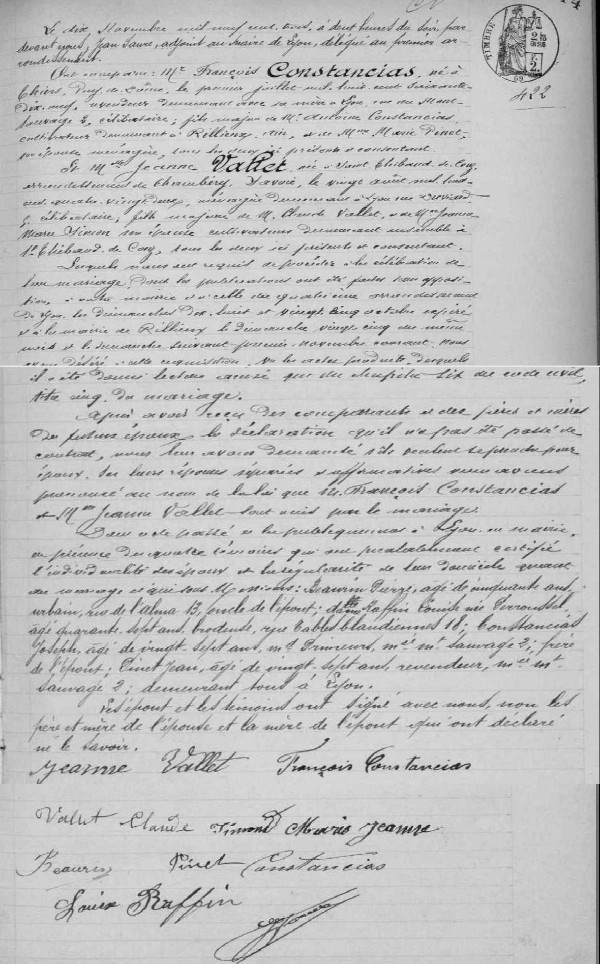 Le dix Novembre mil neuf cent trois, à deux heures du soir, par
devant nous, Jean Faure, adjoint au Maire de Lyon, délégué au premier ar-
rondissement.
Ont comparu: Mr François Constancias, né à
Thiers, Puy-de-Dôme, le premier juillet mil huit cent soixante-
dix-neuf, revendeur demeurant avec sa mère à Lyon, rue du Mont-
Sauvage 2, célibataire; fils majeur de Mr Antoine Constancias,
cultivateur demeurant à Rillieux, Ain, et de Mme Marie Pinet,
son épouse ménagère, tous les deux ici présents et consentant.
Et Mlle Jeanne Vallet née à Saint Thibaud de Couz,
arrondissement de Chambéry, Savoie, le vingt août mil huit
cent quatre-vingt-deux, ménagère demeurant à Lyon rue
célibataire; fille majeure de M. Claude Vallet, et de Mme Jeanne
Marie Simon son épouse cultivateurs demeurant ensemble à
St Thibaud de Couz, tous les deux ici présents et consentant.
Lesquels nous ont requis de procéder à la célébration de
leur mariage, dont les publications ont été faites sans opposi-
tion, à notre mairie et à celle du quatrième arrondissement
de Lyon les dimanches dix-huit et vingt-cinq octobre
et à la mairie de Rillieux le dimanche vingt-cinq du même
mois et le dimanche suivant premier novembre courant. Nous
avons déféré à cette réquisition. Vu les actes produits desquels
il a été donné lecture ainsi que du chapitre six du code civil,
titre cinq, du mariage.
Après avoir reçu des comparants et des pères et mères
des futurs époux la déclaration qu'il n'a pas été passé de
contrat, nous leur avons demandé s'ils veulent se prendre pour
époux. Sur leurs réponses séparées et affirmatives nous avons
prononcé au nom de la loi que Mr François Constancias
et Mlle Jeanne Vallet sont unis par le mariage.
Dont acte passé et lu publiquement à Lyon en mairie,
en présence des quatre témoins qui ont préalablement certifié
l'individualité des époux et la régularité de leur domicile quant
au mariage et qui sont Messieurs: Beaurin Pierre, âgé de cinquante ans,
urbain, rue de l'alma 13, oncle de l'époux; dame Raffin Louise née Perrousset,
âgée quarante-sept ans, brodeuse, rue Tables Claudiennes 18; Constancias
Joseph, âgé de vingt-sept ans, md Primeurs, mée mt Sauvage 2, frère
de l'époux; Pinet Jean, âgé de vingt-sept ans, revendeur, mée mt
Sauvage 2; demeurant tous à Lyon.
Les époux et les témoins ont signé avec nous, non les
père et mère de l'épouse et la mère de l'époux qui ont déclaré
ne le savoir.
Jeanne Vallet François Constancias
Vallet Claude Simond Marie Jeanne
Beaurin Pinet Constancias
Louise Raffin
TIMBRE
422